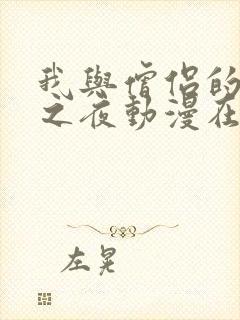 我與僧侶的
之夜動漫在
左晃